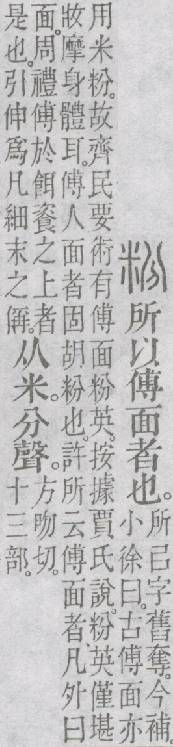 粉 所以傅面者也。
所㠯字舊奪。今補。
小徐曰。古傅面亦
用米粉。故齊民要術有傅面粉英。按據賈氏說。粉英僅堪
妝摩身體耳。傅人面者固胡粉也。許所云傅面者凡外曰
面。周禮傅於餌餈之上者
是也。引伸爲凡細末之偁。
从米。分聲。
方吻切。
十三部。